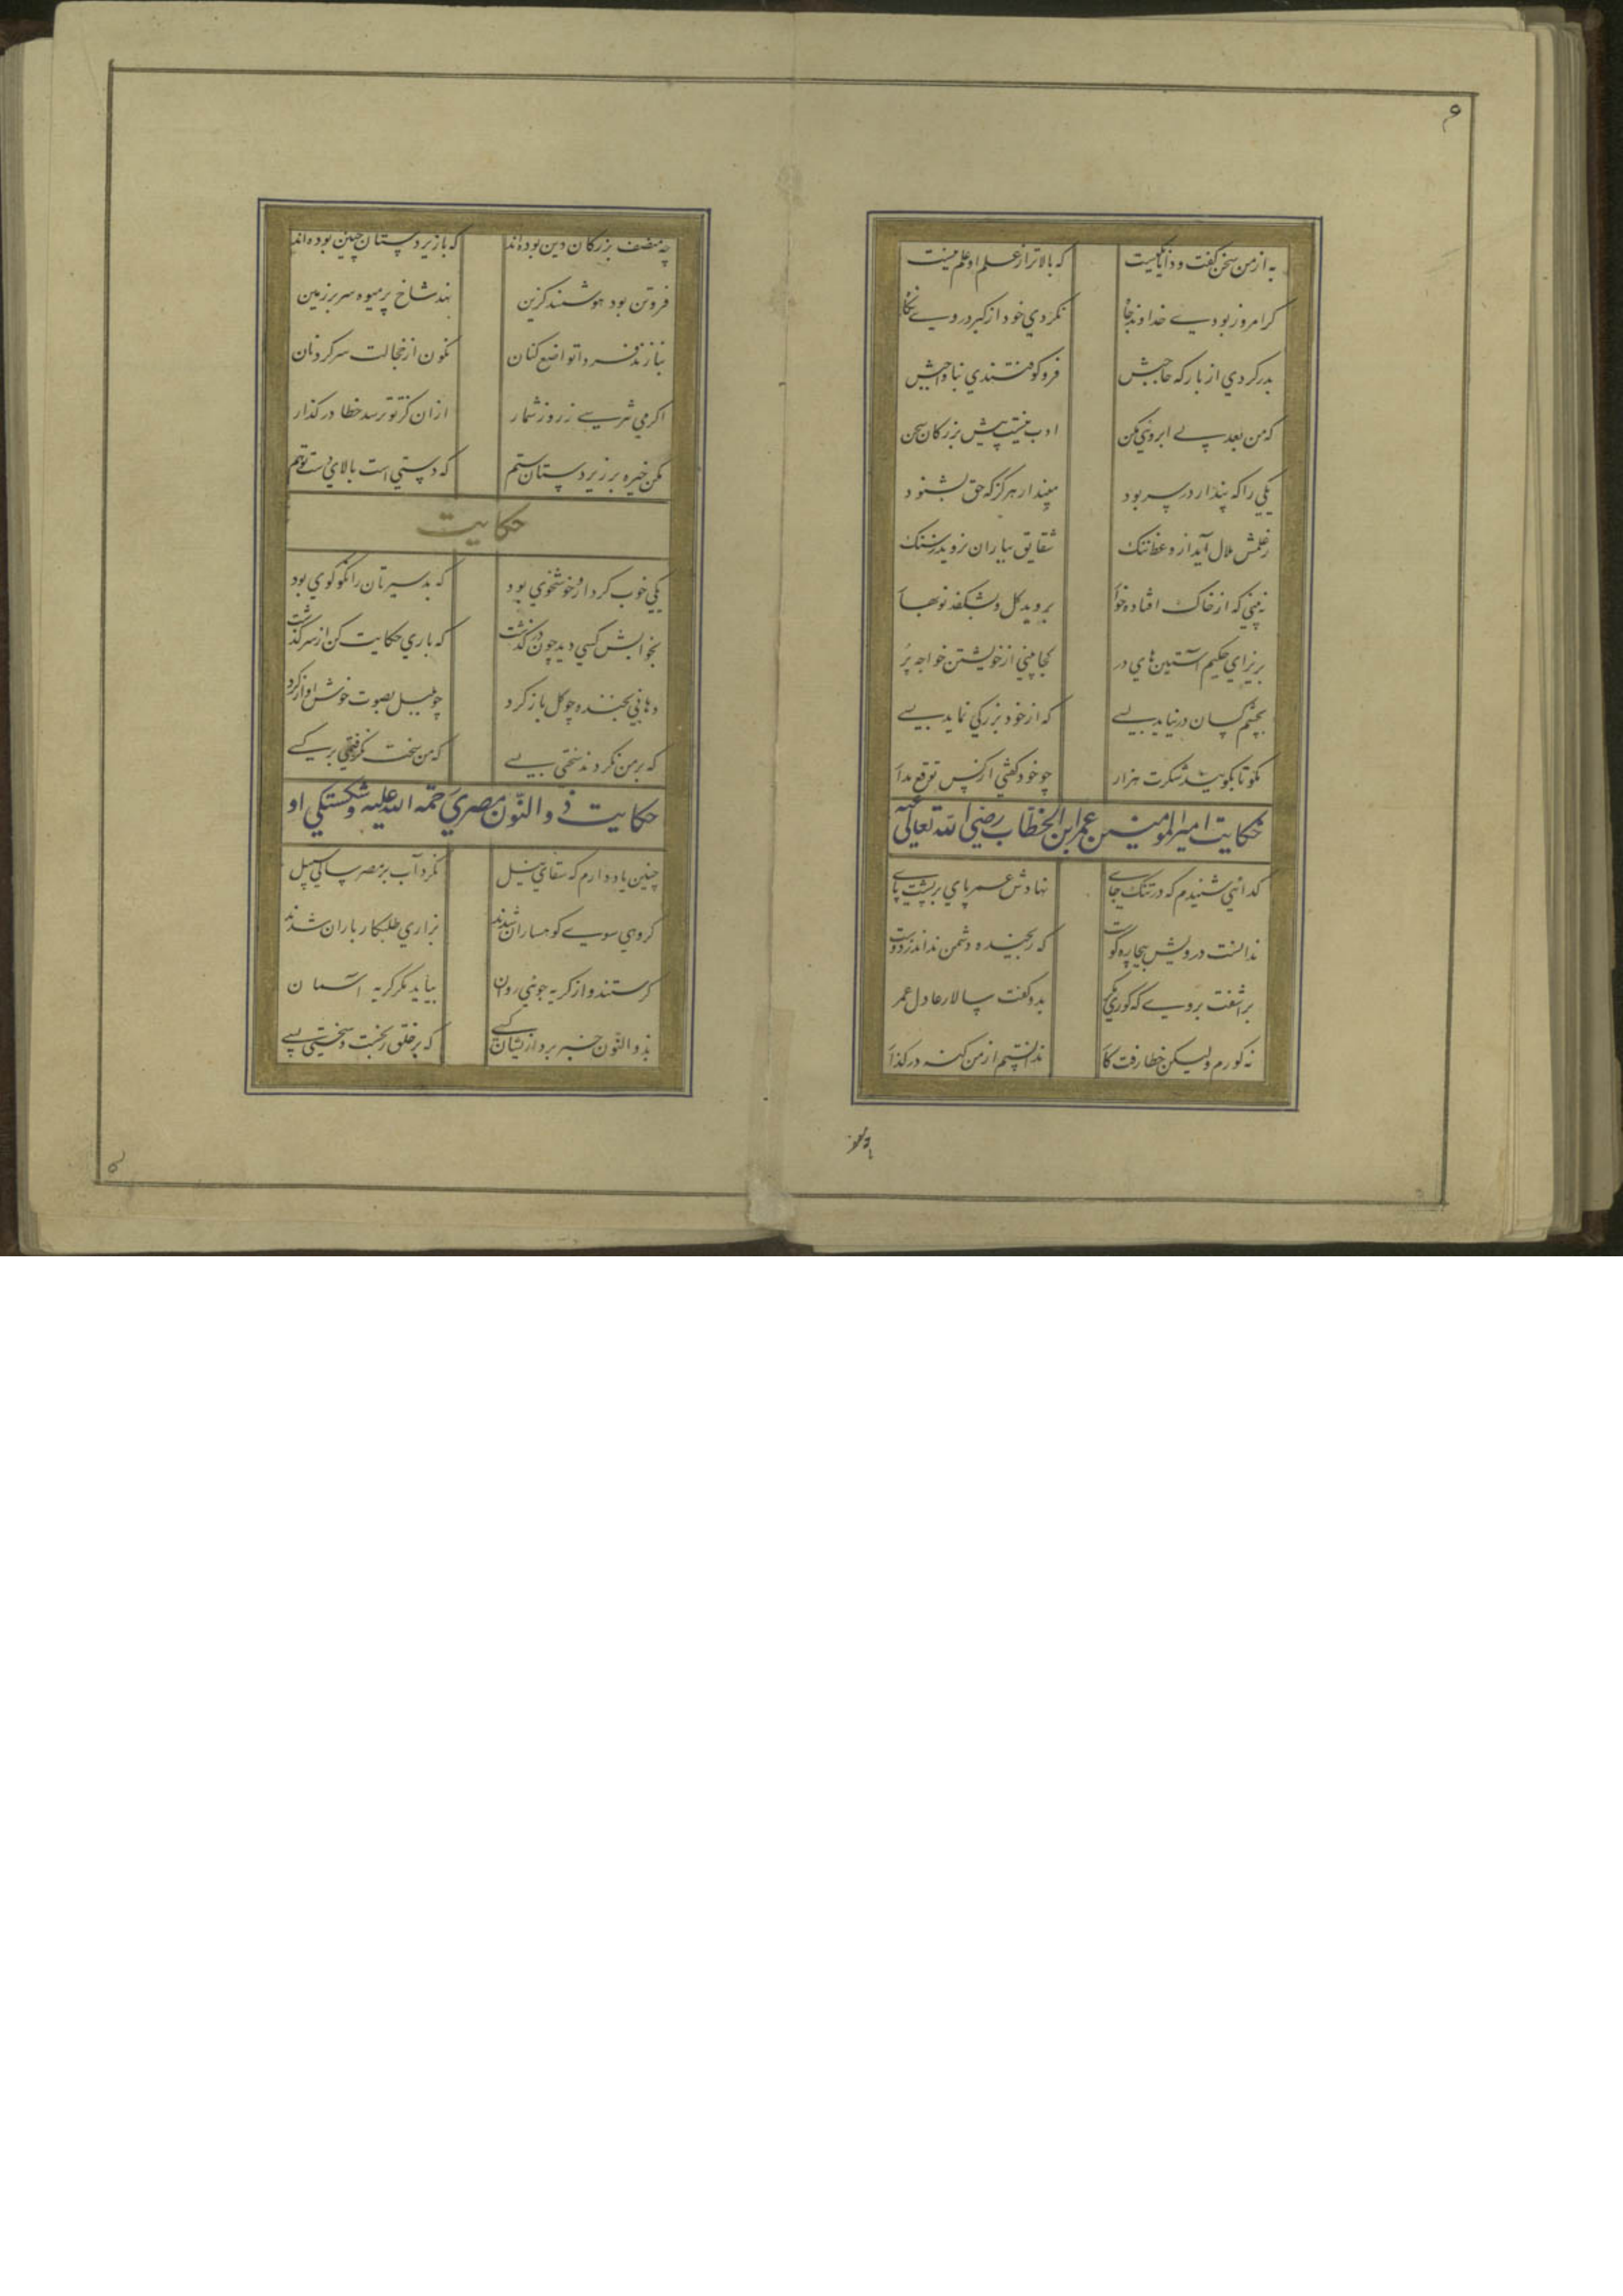 ۶
به از من سخن گفت و دانا یکیست که بالاتر از علم او علم نیست
گر امروز بودے خداوند جا نکردی خود از کبر در وے نگا
بدر کردی از بارگه حاجبش فرو کوفتندی بناواجبش
که من بعد بے ابرویی مکن ادب نیست پیش بزرگان سخن
یکی را که پندار در سر بود مپندار هرگز که حق بشنود
ز علمش ملال آید از وعظ ننگ شقایق بباران نروید ز سنگ
نه بینی که از خاک افتاده خوا بروید گل و بشکفد نوبها
بریز ای حکیم آستین های در کجا بینی از خویشتن خواجه پُر
بچشم کسان در نیاید بسے که از خود بزرگی نماید بسے
مگو تا بگویند شکرت هزار چو خود گفتی از کس توقع مدا
حکایت امیر المومنین عمر ابن الخطاب رضی الله تعالی عنه
گدائی شنیدم که در تنگ جاے نهادش عمر پای بر پشت پاے
ندانست درویش بیچاره کوست که رنجیده دشمن نداند ز دوست
بر آشفت بروے که کوری مگر بدو گفت سالار عادل عمر
نه کورم ولیکن خطا رفت کا ندانستم از من گنه در گذا
چه منصف بزرگان دین بوده اند که با زیر دستان چنین بوده اند
فروتن بود هوشمند گزین نهد شاخ پر میوه سر بر زمین
بنازند فردا تواضع کنان نگون از خجالت سر گردنان
اگر می بترسے ز روز شمار ازان کز تو ترسد خطا در گذار
مکن خیره بر زیر دستان ستم که دستی است بالای دست تو هم
حکایت
یکی خوب کردار و خوشخوی بود که بد سیرتان را نکو گوی بود
بخوابش کسی دید چون در گذشت که باری حکایت کن از سر گذشت
دهانی بخنده چو گل باز کرد چو بلبل بصوت خوش آواز کرد
که بر من نکردند سختی بسے که من سخت نگرفتمی بر کسے
حکایت ذو النّون مصری رحمة الله علیه و شکستگی او
چنین یاد دارم که سقای نیل نکرد آب بر مصر سالی سبیل
گروهی سوے کوهساران شدند بزاری طلبکار باران شدند
گرستند و از گریه جوئی روان بیاید مگر گریه آسمان
بذو النّون خبر برد از یشان کسے که بر خلق رنجست و سختی بسے